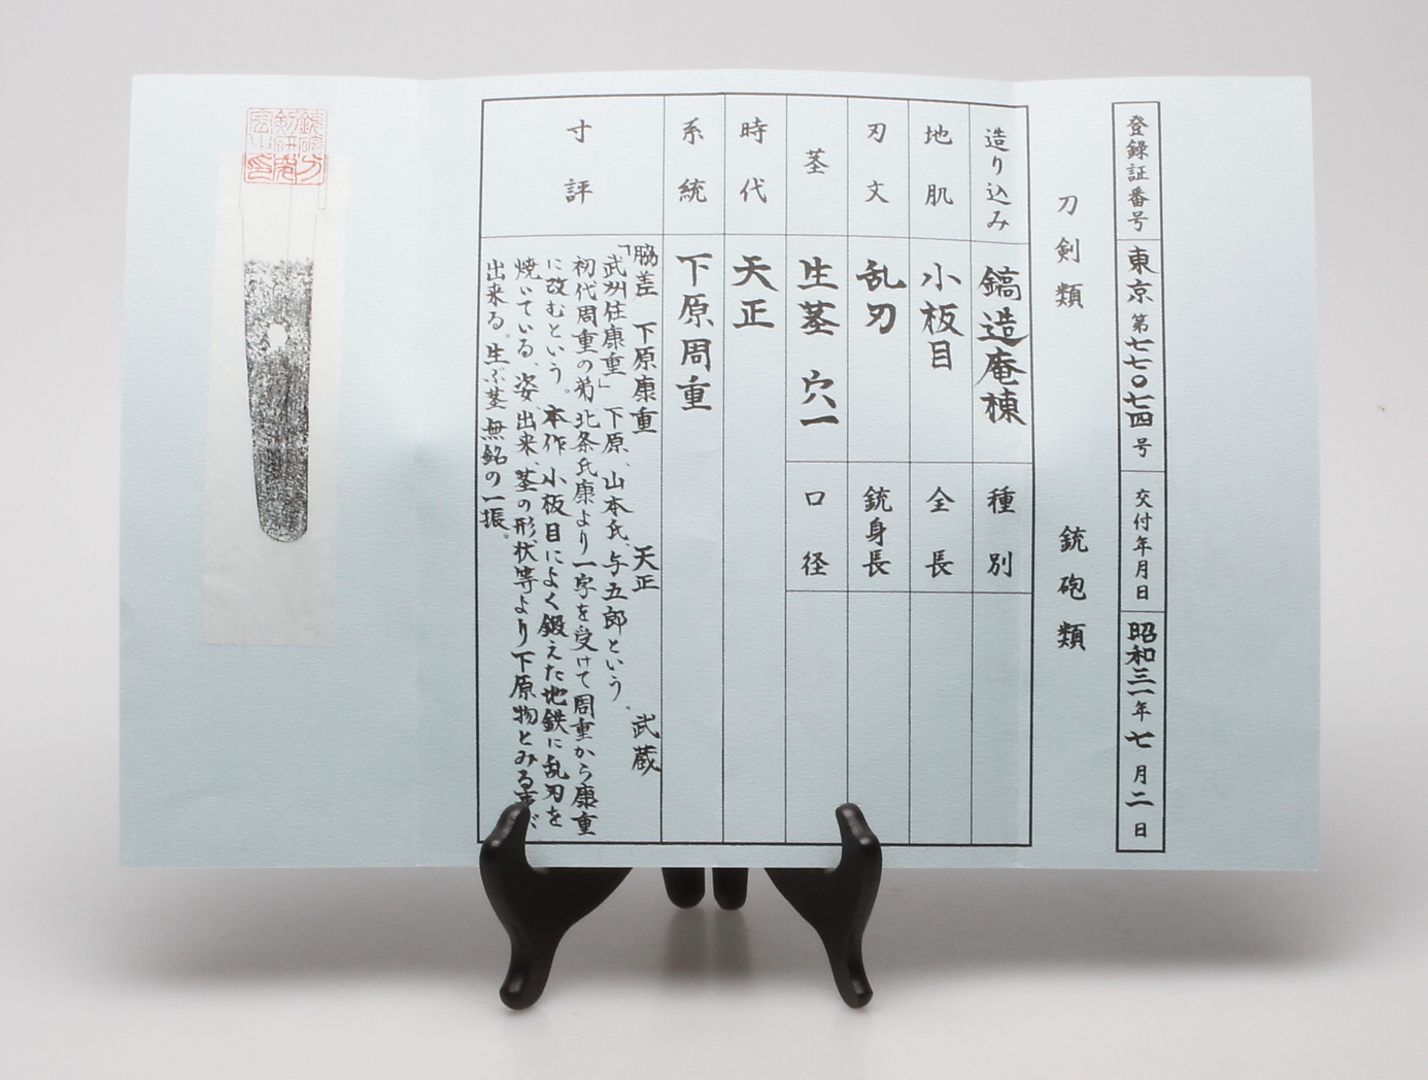 登録証番号 東京 第七七〇七四号 交付年月日 昭和三一年七月二日
刀剣類 銃砲類
造り込み 鎬造庵棟 種別
地肌 小板目 全長
刃文 乱刃 銃身長
茎 生茎 穴一 口径
時代 天正
系統 下原周重
寸評
脇差 下原康重 天正 武蔵
「武州住康重」 下原、山本氏、与五郎という。
初代周重の弟 北条氏康より一字を受けて周重から康重
に改むという。本作 小板目によく鍛えた地鉄に乱刃を
焼いている、姿、出来、茎の形状等より下原物とみる事が
出来る。生ぶ茎 無銘の一振。